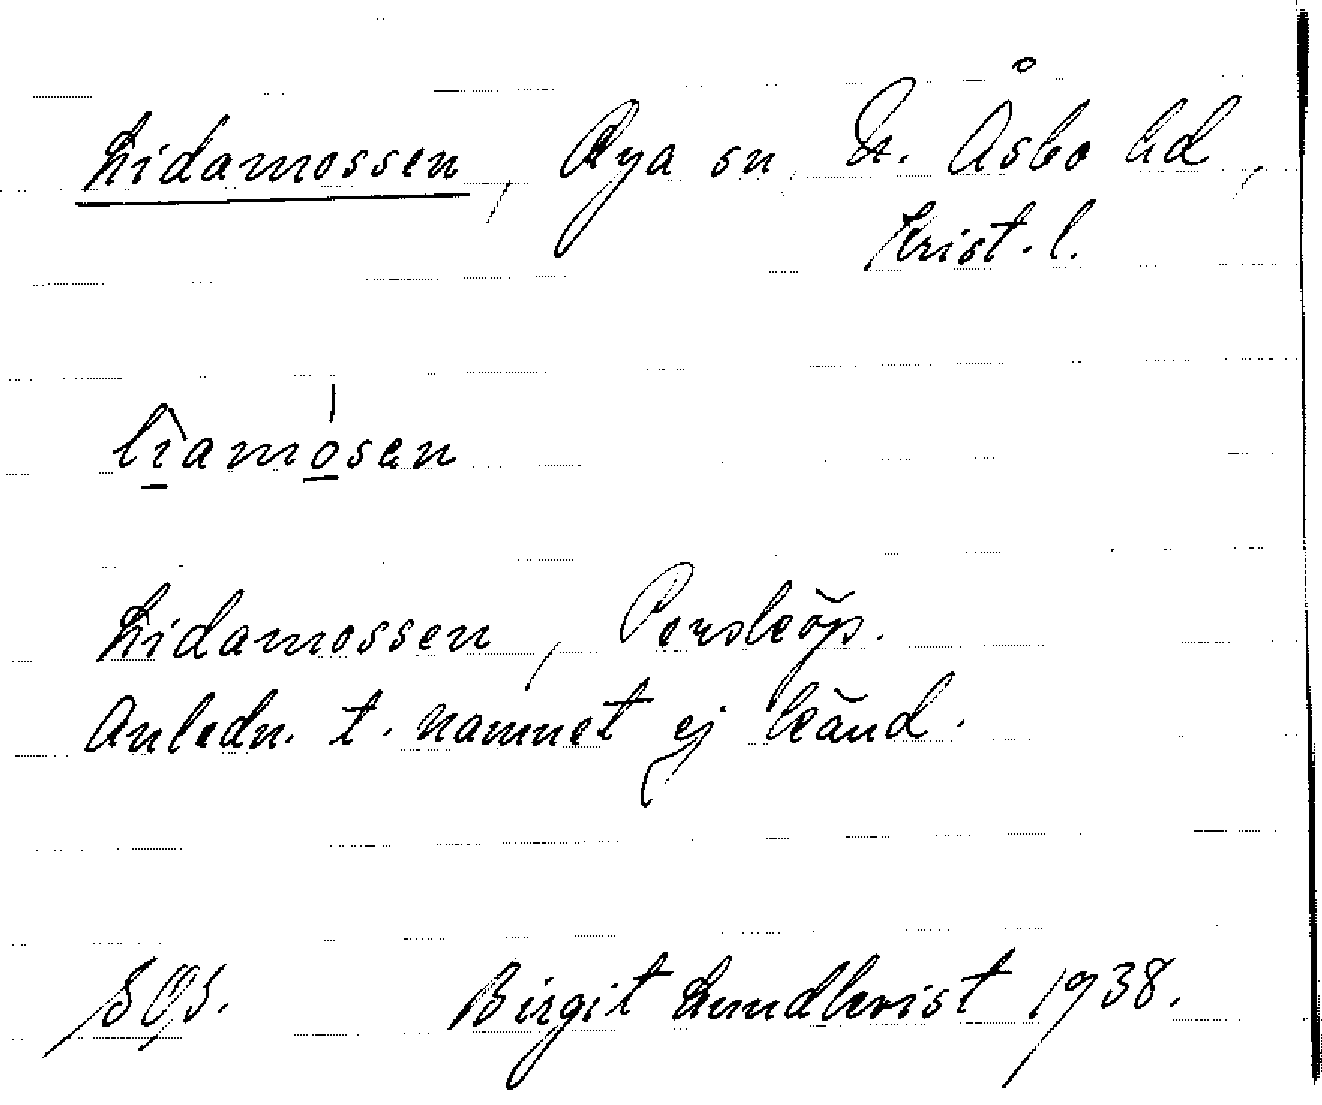 Lidamossen, Rya sn. N. Åsbo hd,
Krist. l.
lîamósen
Lidamossen, Perskŏp.
Anledn. t. namnet ej känd.
SOS. Birgit Lundkvist 1938.